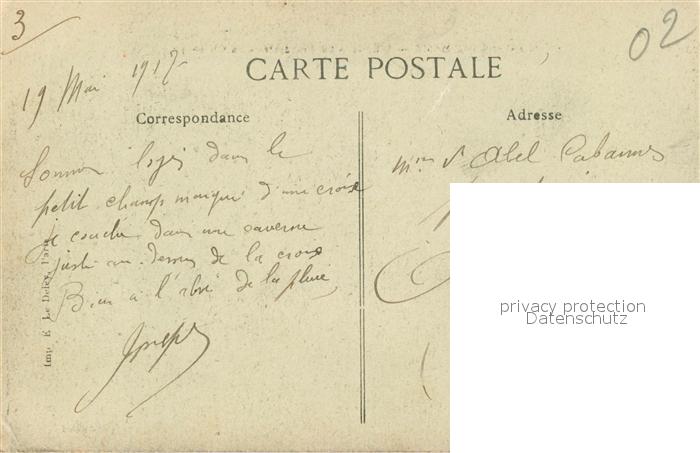 3
02
19 Mai 1917
CARTE POSTALE
Correspondance
Adresse
Sommes logés dans le
petit champ marqué d'une croix
je couche dans une caverne
juste au-dessus de la croix
Bien à l'abri de la pluie,
Joseph
Mme Vve Abel Cabannes
Imp. E. Le Deley, Paris
privacy protection
Datenschutz